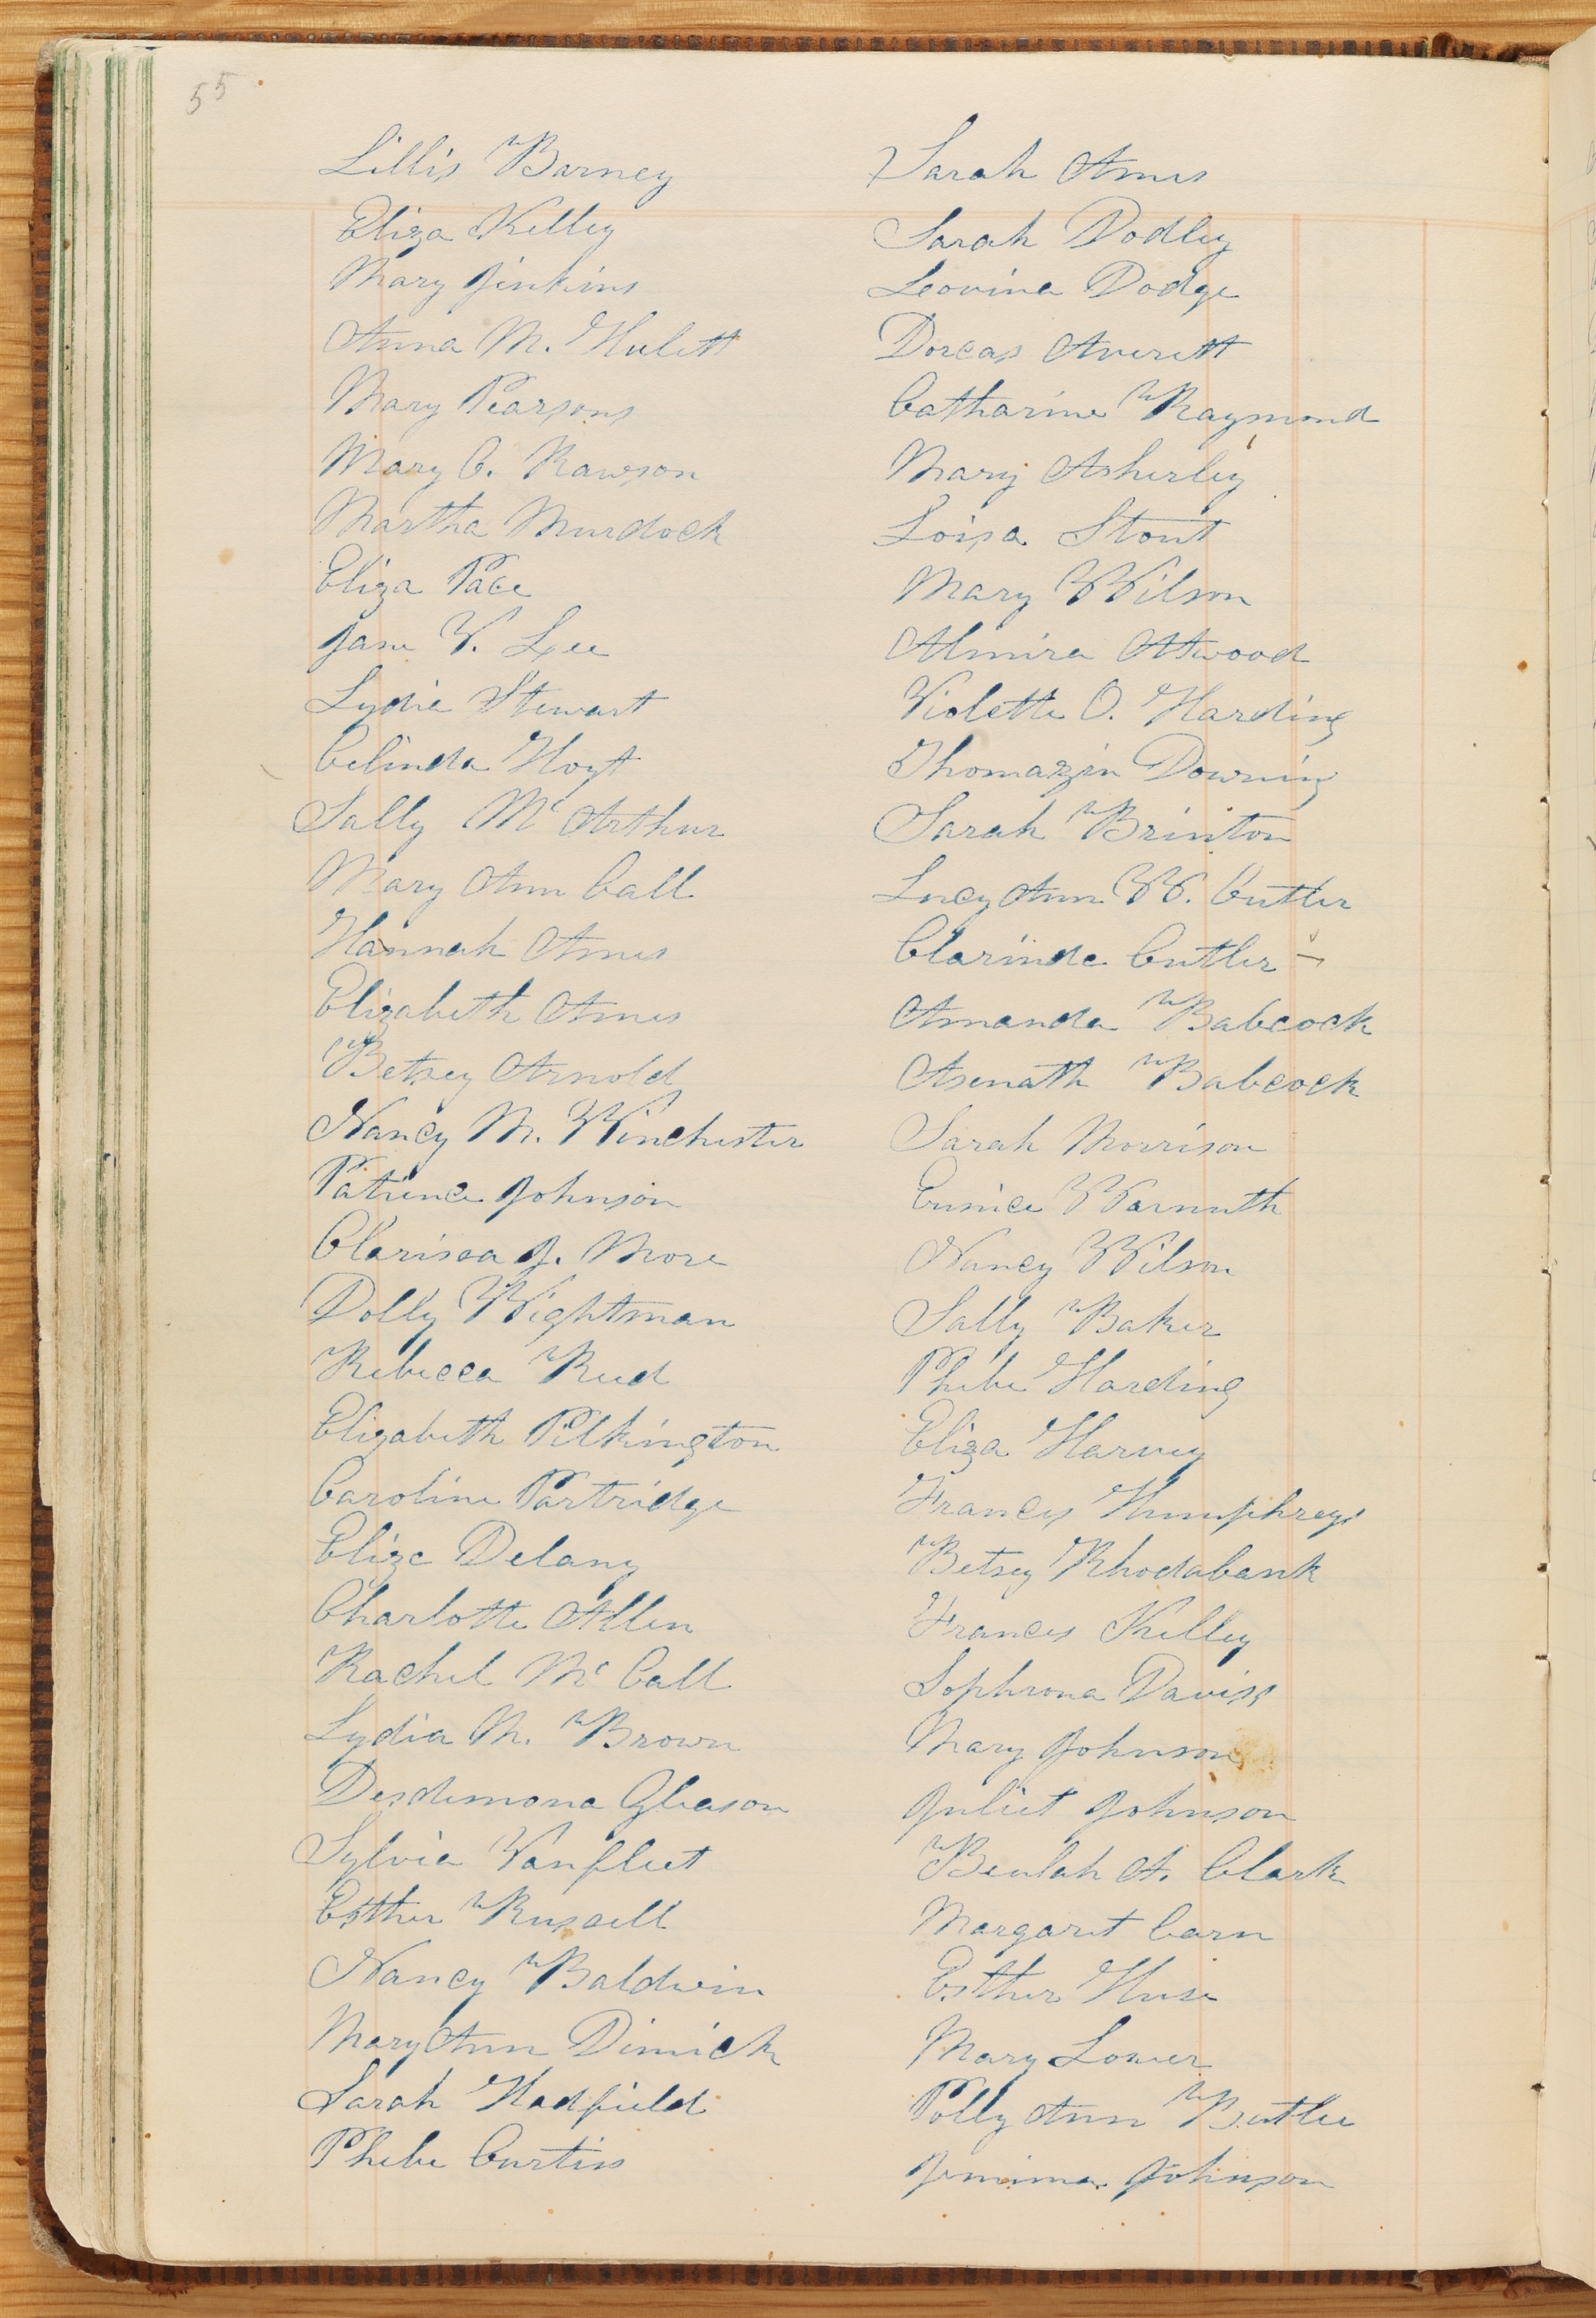 55
Lillis Barney
Eliza Kelley
Mary Jenkins
Anna M. Hulett
Mary Pearsons
Mary C. Rawson
Martha Murdock
Eliza Pace
Jane V. Lee
Lydia Stewart
Celinda Hoyt
Sally Mc Arthur
Mary Ann Call
Hannah Ames
Elizabeth Ames
Betsey Arnold
Nancy M. Winchester
Patience Johnson
Clarissa J. More
Dolly Wightman
Rebecca Reed
Elizabeth Pilkington
Caroline Partridge
Eliza Delany
Charlotte Allen
Rachel Mc Call
Lydia M. Brown
Desdemona Gleason
Sylvia Vanfleet
Esther Russell
Nancy Baldwin
Mary Ann Dimick
Sarah Hadfield
Phebe Curtiss
Sarah Ames
Sarah Dodley
Leovina Dodge
Dorcas Averett
Catharine Raymond
Mary Asherley
Loisa Stout
Mary Wilson
Almira Atwood
Violette O. Harding
Thomazin Downing
Sarah Brinton
Lucy Ann W. Cutler
Clarinda Cutler
Amanda Babcock
Asenath Babcock
Sarah Morrison
Eunice Warmuth
Nancy Wilson
Sally Baker
Phebe Harding
Eliza Harvey
Frances Humphreys
Betsey Rhodabank
Frances Kelley
Sophrona Daviss
Mary Johnson
Juliet Johnson
Beulah A. Clark
Margaret Carn
Esther Huse
Mary Lower
Polly Ann
Jemima Johnson